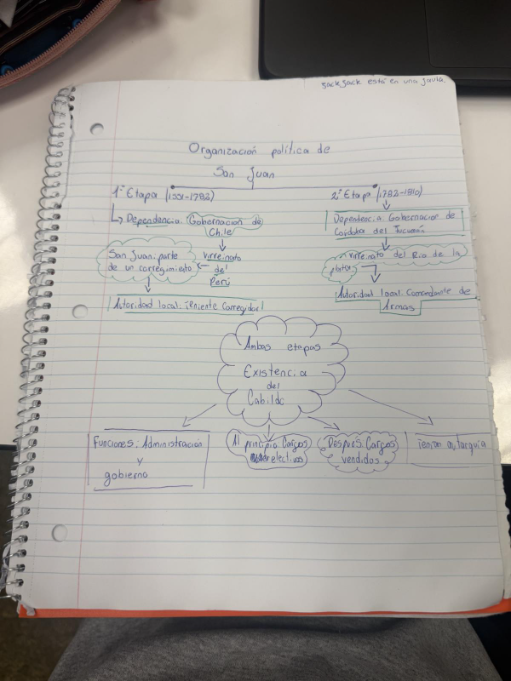 Jack Jack está en una jaula
Organización política de
San Juan
1° Etapa (1551-1782)
Dependencia Gobernación de
Chile
Virreinato
del
Perú
San Juan: parte
de un corregimiento
Autoridad local: Teniente Corregidor
2° Etapa (1782-1810)
Dependencia: Gobernación de
Cordoba del Tucumán
virreinato del Rio de la
plata
Autoridad local: Comandante de
Armas
Ambas etapas
Existencia
del
Cabildo
Funciones: Administración
y
gobierno
Al principio Cargos
electivos
Después: Cargos
vendidos
autarquía